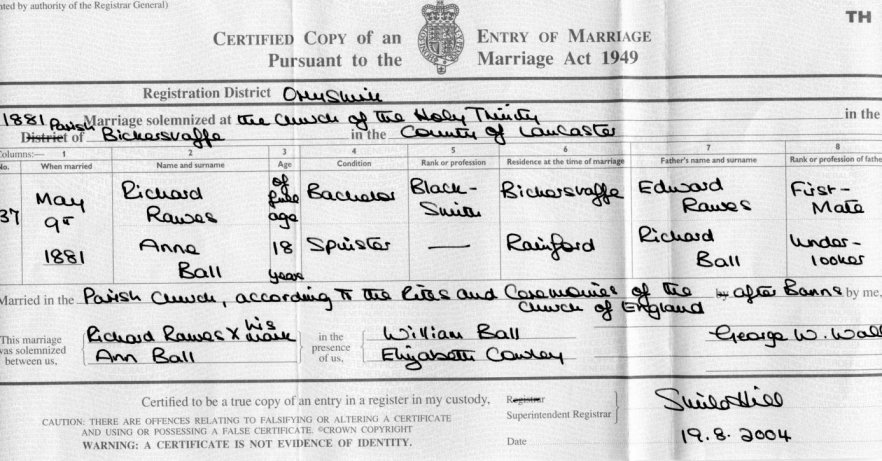 nted by authority of the Registrar General)
TH
CERTIFIED COPY of an ENTRY OF MARRIAGE
Pursuant to the Marriage Act 1949
Registration District Ormskirk
1881 Marriage solemnized at the Church of the Holy Trinity in the
Parish District of Bickerstaffe in the County of Lancaster
Columns:— 1 2 3 4 5 6 7 8
No. When married Name and surname Age Condition Rank or profession Residence at the time of marriage Father's name and surname Rank or profession of fathe
37 May 9th 1881 Richard Rawes of full age Bachelor Black-Smith Bickerstaffe Edward Rawes First-Mate
Anne Ball 18 years Spinster — Rainford Richard Ball Under-looker
Married in the Parish Church, according to the Rites and Ceremonies of the Church of England by after Banns by me,
This marriage was solemnized between us, Richard Rawes X his mark in the presence of us, William Ball George W. Wall
Ann Ball Elizabeth Cowley
Certified to be a true copy of an entry in a register in my custody, Registrar
Superintendent Registrar
CAUTION: THERE ARE OFFENCES RELATING TO FALSIFYING OR ALTERING A CERTIFICATE
AND USING OR POSSESSING A FALSE CERTIFICATE. ©CROWN COPYRIGHT
WARNING: A CERTIFICATE IS NOT EVIDENCE OF IDENTITY.
Date 19.8.2004